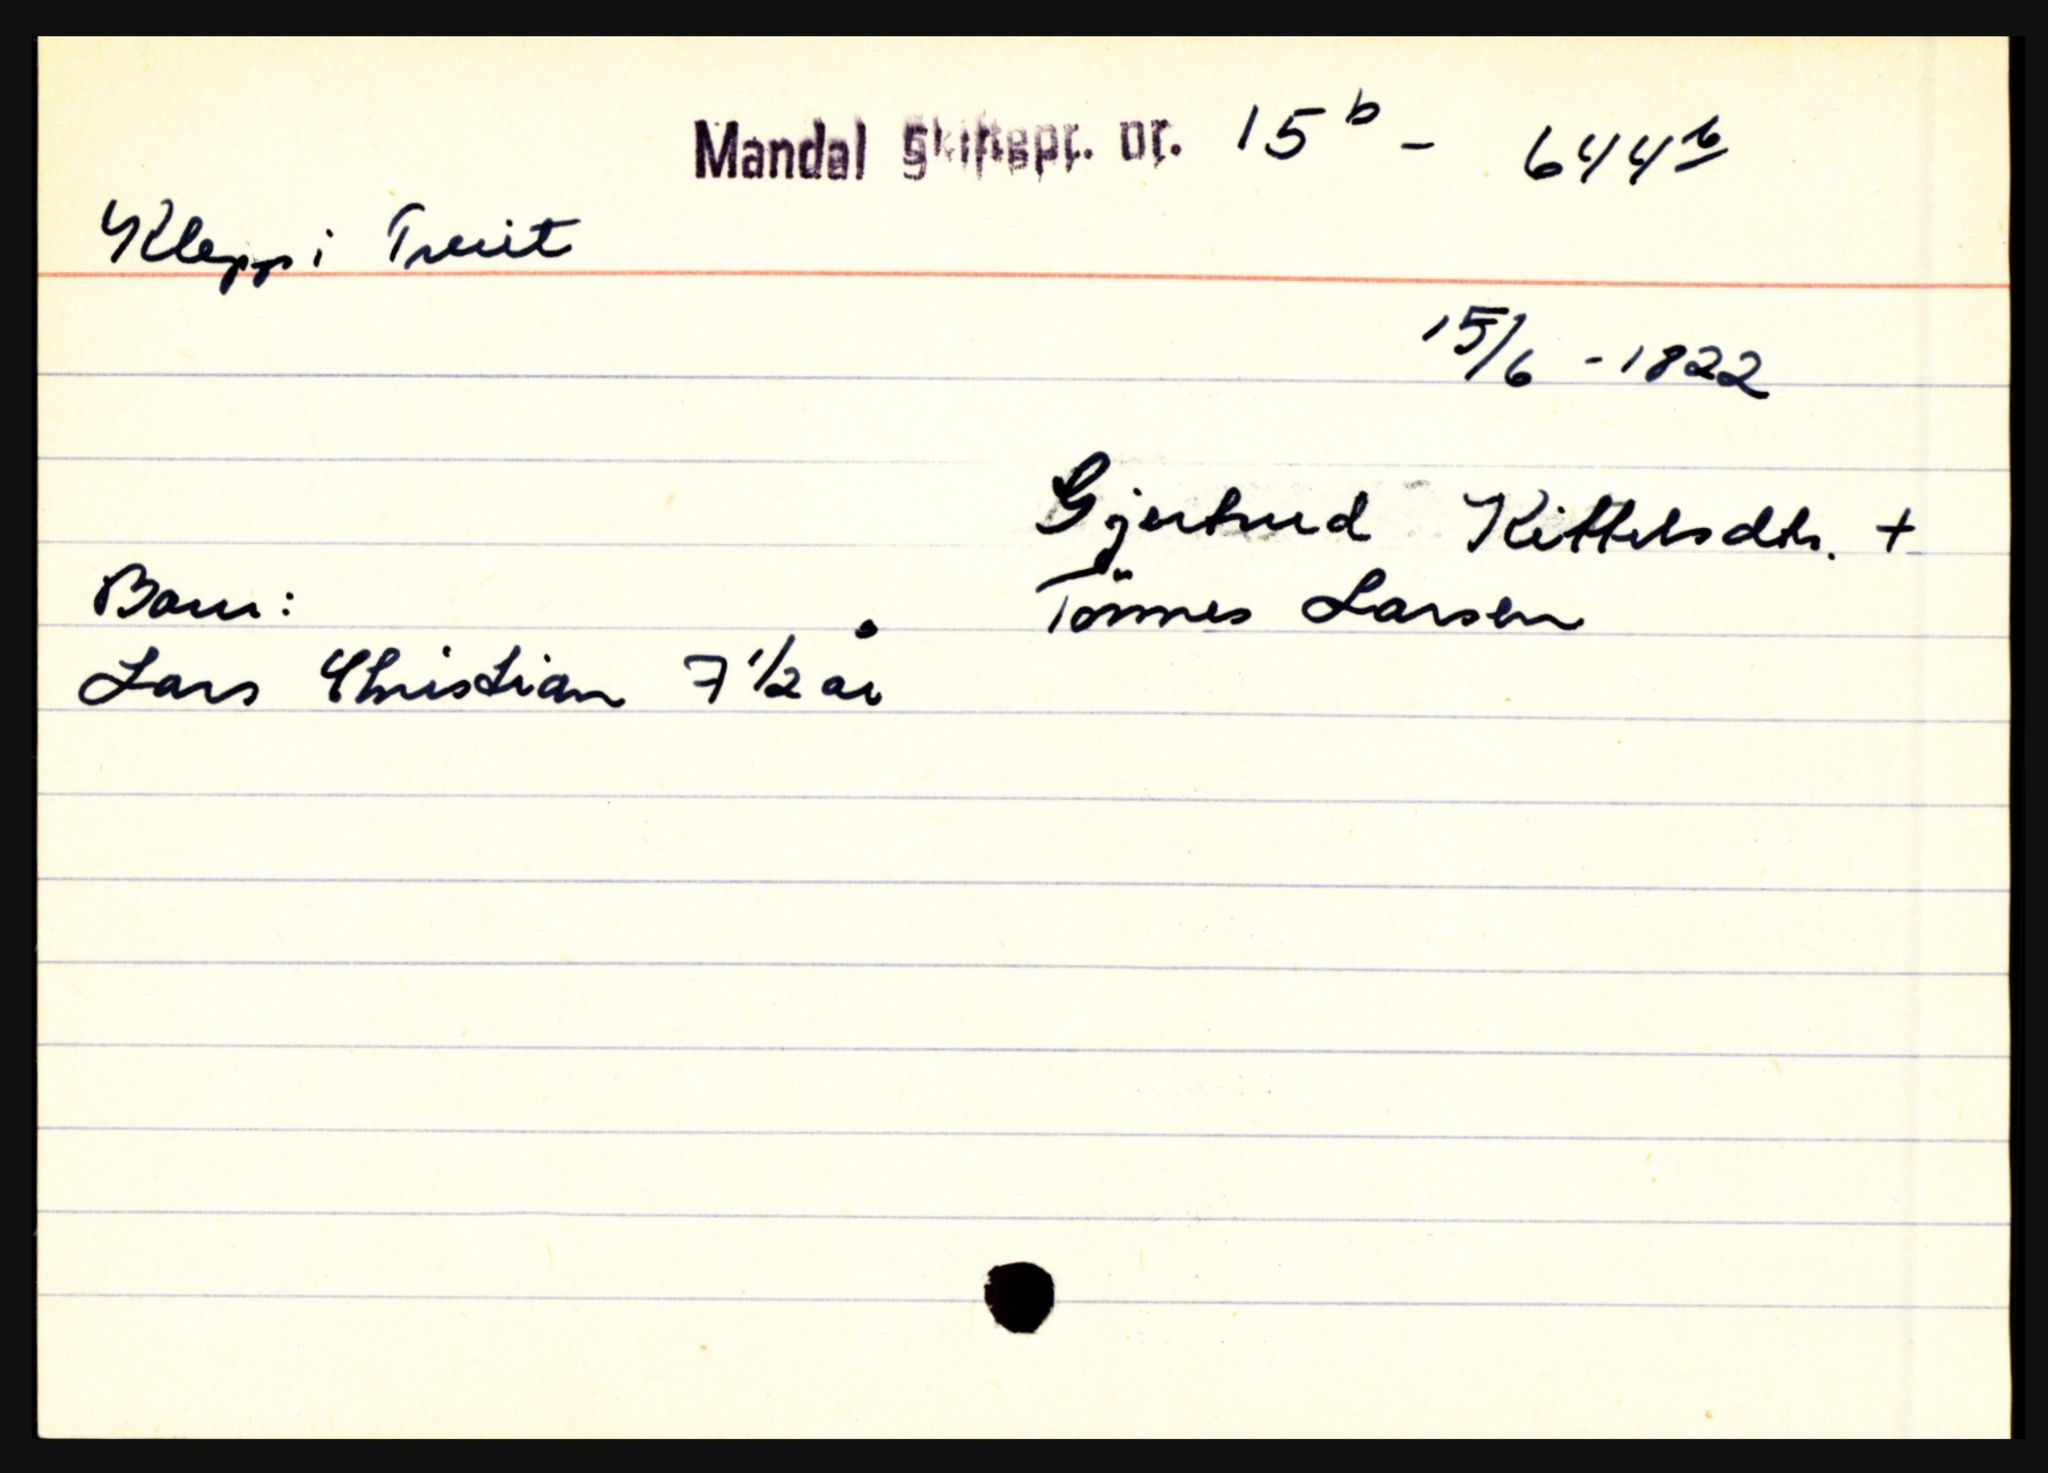 Mandal Skiftepr. nr. 15b - 644b
Klepp i Treit
15/6 - 1822
Gjertrud Kittelsdtr. +
Tönnes Larsen
Barn:
Lars Christian 7 1/2 år